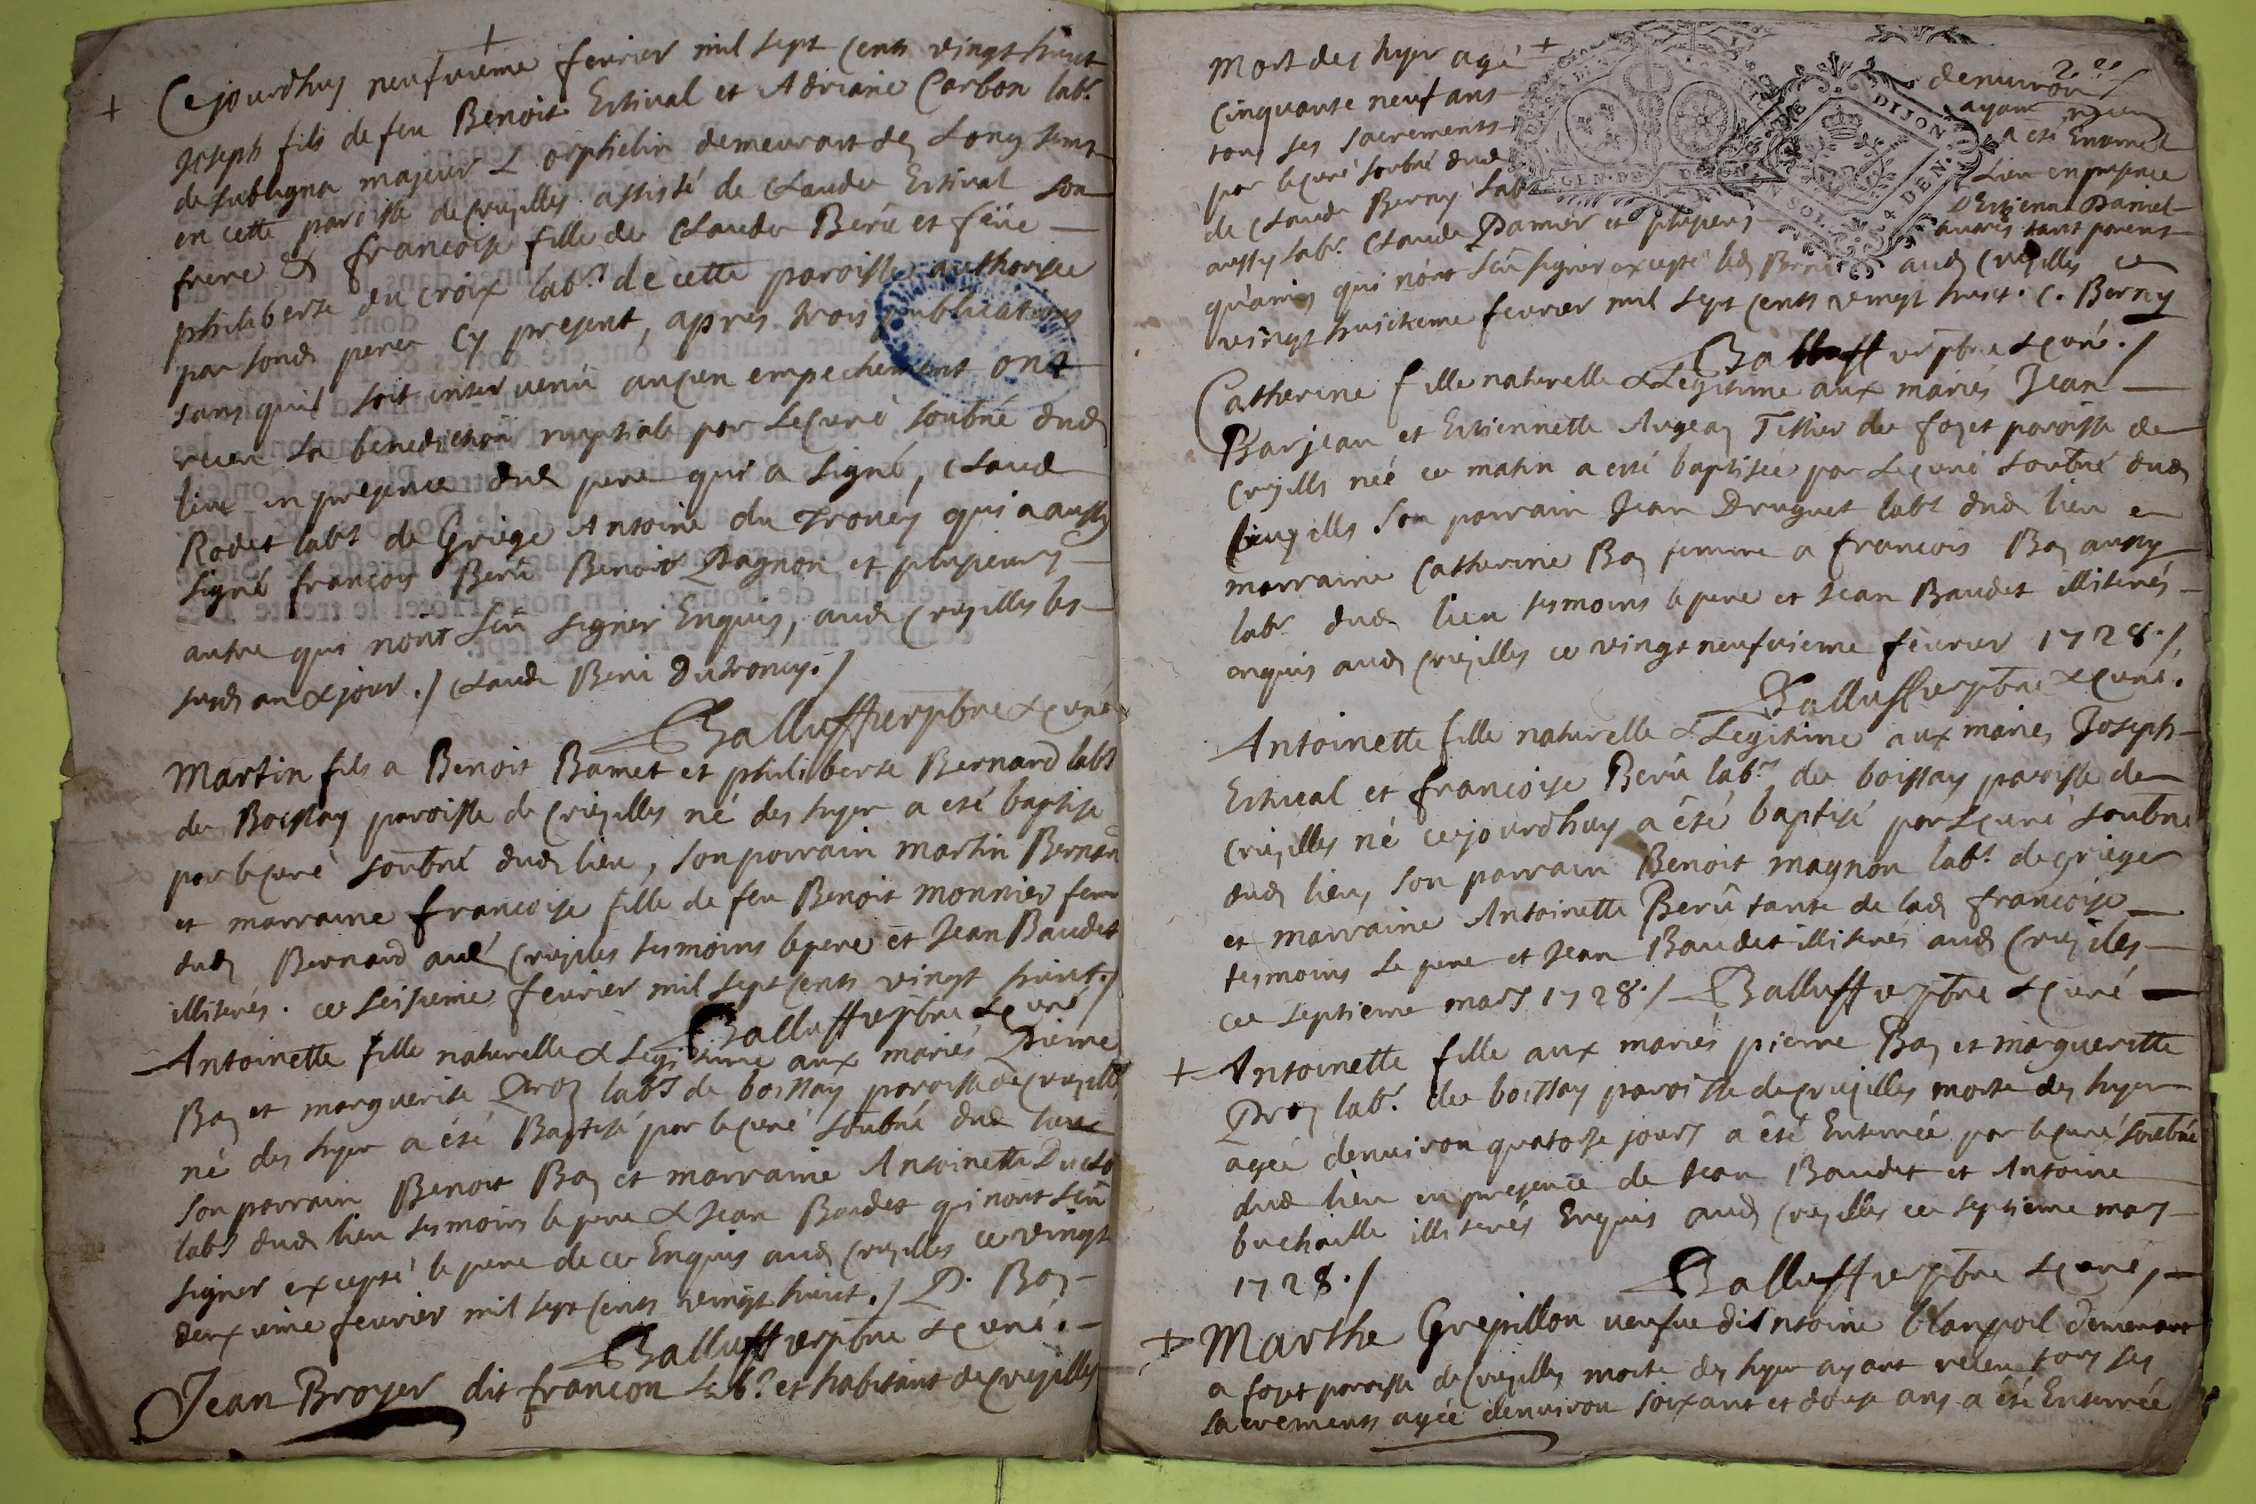 Cejourdhuy neufvieme fevrier mil sept cents vingt huict
Joseph fils de feu Benoit Estival et Adriane Carbon labr.
de Sulligna majeur & orphelin demeurant dez long tems
en cette paroisse de Crusilles assisté de Claude Estival son
frere & francoise fille de Claude Berú et feüe
philiberte du croix labrs. de cette paroisse authorisée
par sond. pere Cy present, après trois publications
sans quil soit intervenú aucun empechement ont
receu la benediction nuptiale par le curé soubné dud.
lieu en presence dud. pere qui a signé, Claude
Rodet labr. de Griege Antoine du troncy qui a aussy
signé francois Berú Benoit Pagnon et plusieurs
autre qui nont sçú signer Enquis, aud. Crusilles les
susd. an & jour ./ Claude Beru Dutroncy ./
Balluffier pbre & curé
Martin fils a Benoit Bamet et philiberte Bernard labrs
de Boissay paroisse de Crusilles né des hyer a esté baptisé
par le curé soubné dud. lieu, son parrain martin Bernard
et marraine francoise fille de feu Benoit monnier femme
dud. Bernard aud. Crusilles tesmoins le pere et Jean Baudet
illiterés. ce seisieme fevrier mil sept cents vingt huict ./
Balluffier pbre & curé
Antoinette fille naturelle & Legitime aux mariés Pierre
Bay et marguerite Proz labrs de boissay paroisse de Crusilles
né des hyer a été Baptisé par le curé soubné dud. lieu
son parrain Benoit Bay et marraine Antoinette
labrs dud. lieu tesmoins le pere & Jean Baudet qui nont sçú
signer excepté le pere de ce Enquis aud. Crusilles ce vingt
deuxieme fevrier mil sept cents vingt huict ./ P. Bay
Balluffier pbre & curé.
Jean Broyer dit francon Labr. et habitant de Crusilles
mort des hyer agé denviron
cinquante neuf ans ayant receu
tous ses sacrements a été Enterré
par le curé soubné dud. Lieu en presence
de Claude Berny labr. Estienne Daniel
aussy labr. Claude Pamier et plusieurs autres tant parents
quamis qui nont sçú signer excepté led. Berny aud. Crusilles ce
vingt huicitieme fevrier mil sept cents vingt huict. C. Berny
Balluffier pbre & curé ./
GEN. DE DIJON
DIJON
SOL. 4 DEN.
Catherine fille naturelle & Legitime aux mariés Jean
Barjeau et Estiennette Augeay Tissier de fozet paroisse de
Crusills né ce matin a esté baptisée par le curé soubné dud.
Crusills son parrain Jean Druguet labr dud. lieu &
marraine Catherine Bay femme a francois Bay aussy
labr. dud. lieu tesmoins le pere et Jean Baudet illiterés
enquis aud. Crusilles ce vingt neufvieme fevrier 1728 ./
Balluffier pbre & curé.
Antoinette fille naturelle & Legitime aux mariés Joseph
Estival et francoise Berú labrs. de boissay paroisse de
Crusilles né cejourdhuy a été baptisé par le curé soubné
dud. lieu, son parrain Benoit magnon labr. de griege
et marraine Antoinette Berú tante de lad. francoise
tesmoins le pere et Jean Baudet illiteres aud. Crusilles
ce septieme mars 1728 ./ Balluffier pbre & curé
Antoinette fille aux mariés pierre Bay et margueritte
Proz labr. de boissay paroisse de Crusilles morte des hyer
agée denviron quatorse jours a été Enterrée par le curé soubné
dud. lieu en presence de Jean Baudet et Antoine
buchaille illiterés Enquis aud. Crusilles ce septieme mars
1728 ./
Balluffier pbre & curé,
Marthe Grepillon veufve dAntoine blanpoil demeurant
a fozet paroisse de Crusilles morte des hyer ayant receu tous ses
sacrements agée denviron soixant et douse ans a été Enterrée